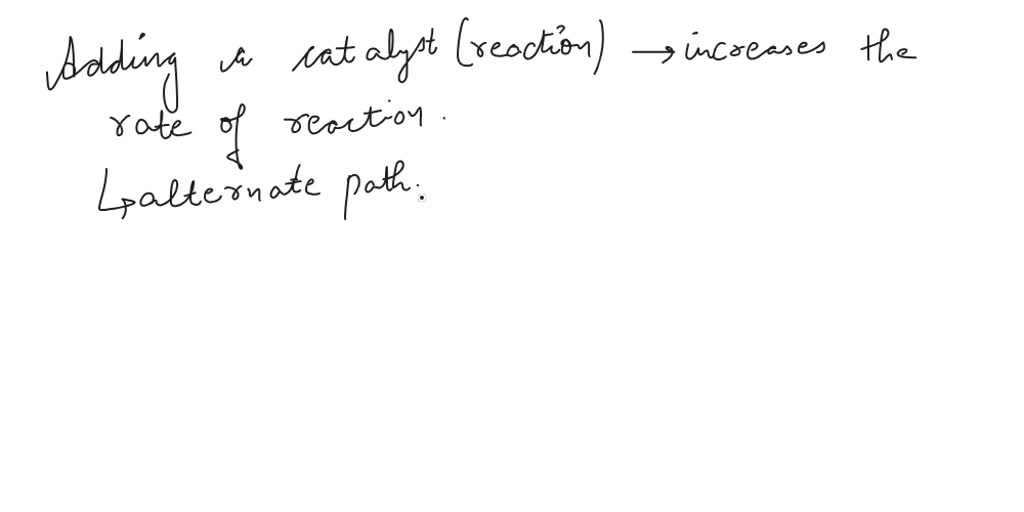 Adding a catalyst (reaction) → increases the
rate of reaction.
↳ alternate path.